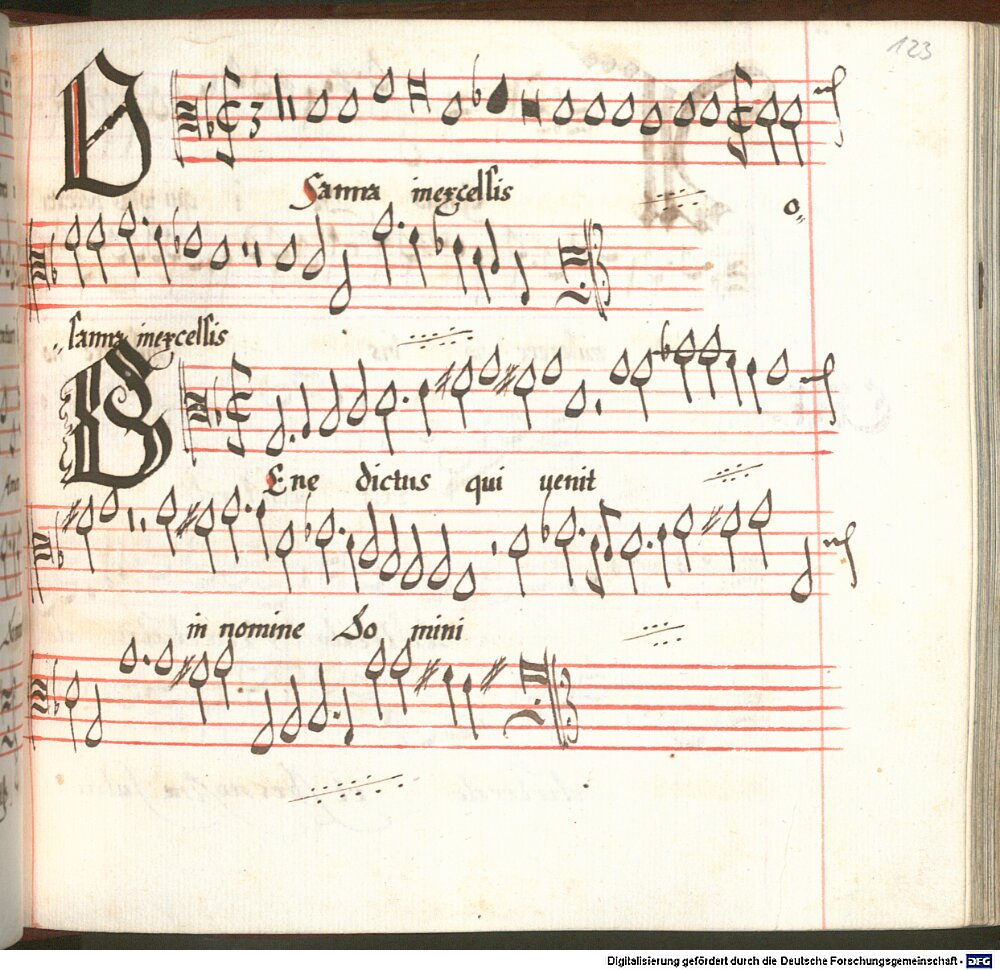 123
OSanna inexcellis
o
sanna inexcellis
BEne dictus qui uenit
in nomine Do mini
Digitalisierung gefördert durch die Deutsche Forschungsgemeinschaft - DFG